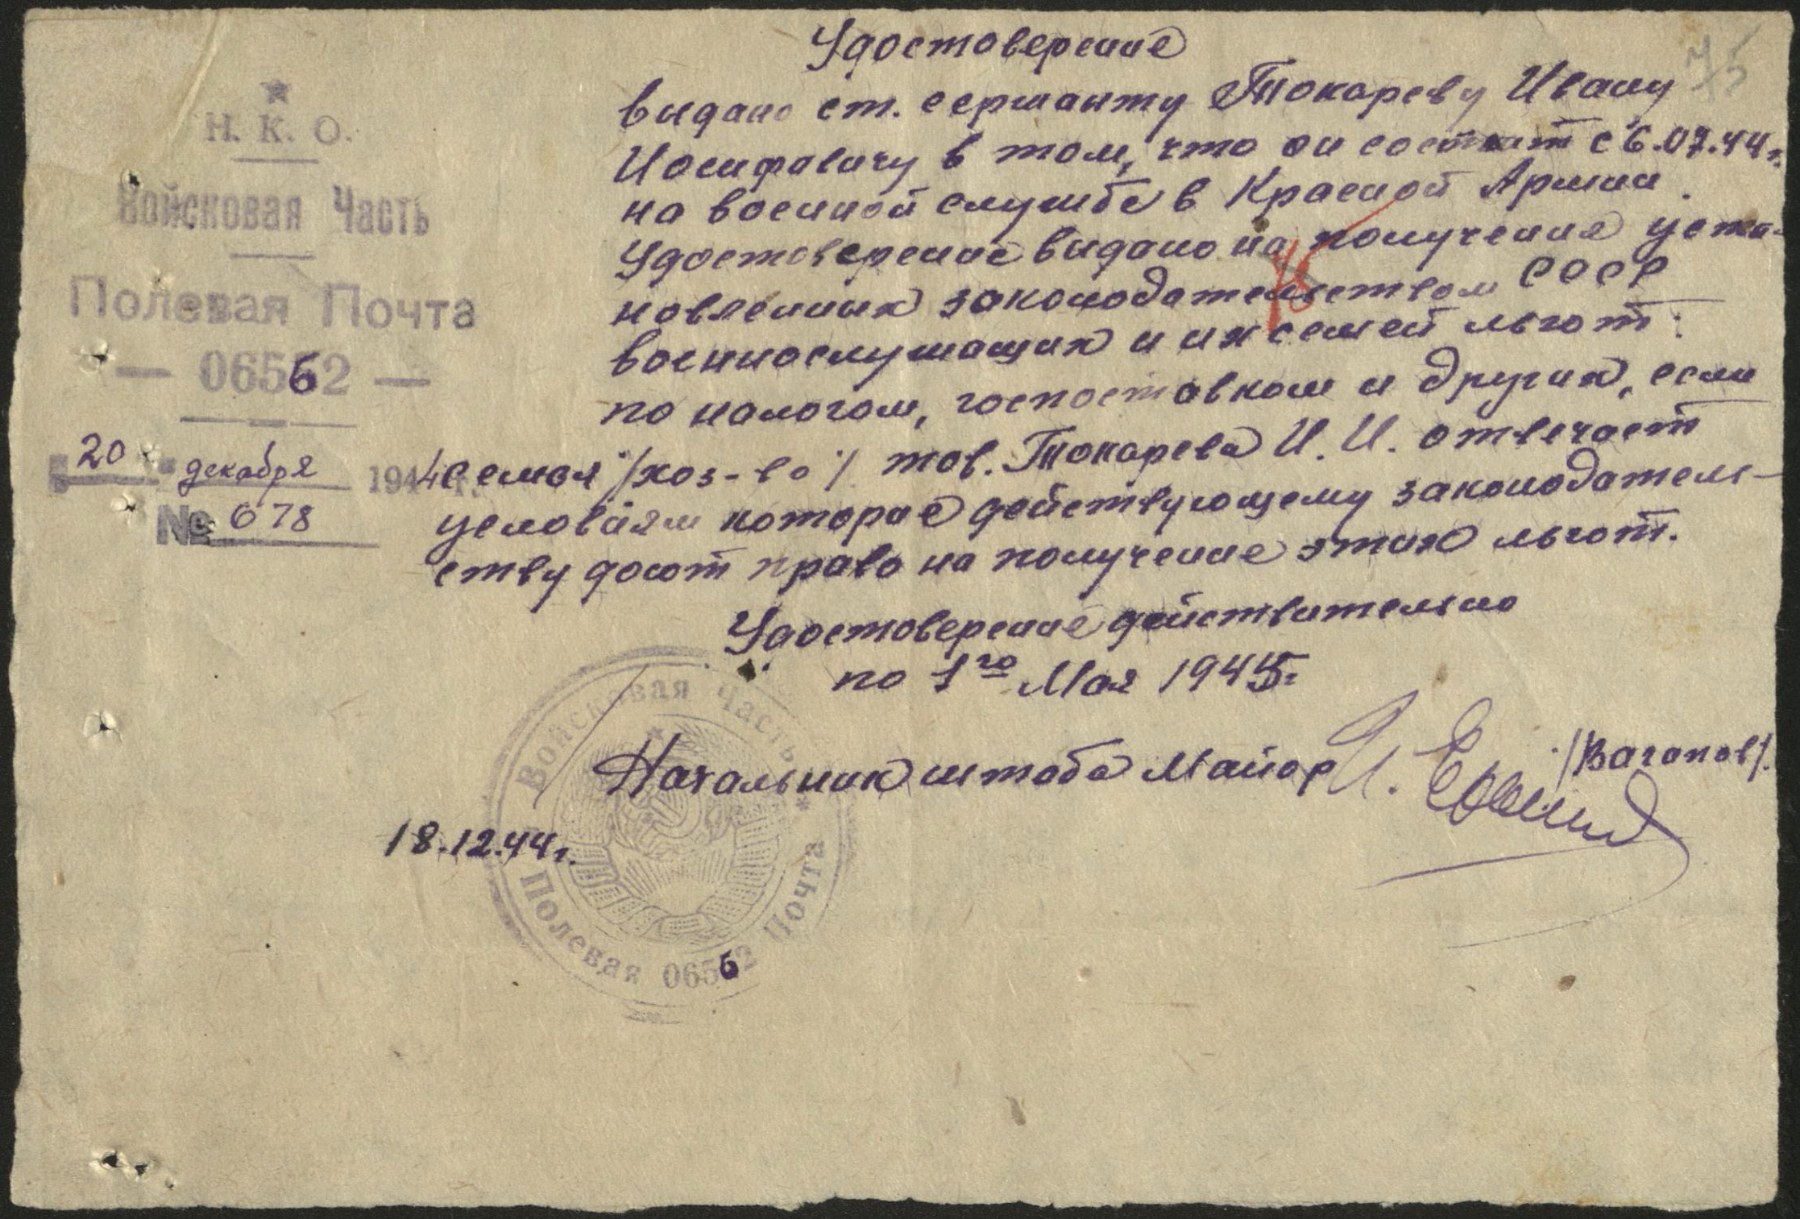 75
Удостоверение
Н. К. О.
Войсковая Часть
Полевая Почта
— 06562 —
"20" декабря 1944 г.
№ 678
выдано ст. сержанту Токареву Ивану
Иосифовичу в том, что он состоит с 6.07.44 г.
на военной службе в Красной Армии.
Удостоверение выдано на получения уста-
новленных законодательством СССР
военнослужащих и их семей льгот:
по налогом, госпоставком и других, если
семья /хоз-во/ тов. Токарева И. И. отвечает
условиям которые действующему законодатель-
ству дают право на получение этих льгот.
Удостоверение действительно
по 1го Мая 1945 г.
Начальник штаба Майор /Ваганов/.
18.12.44 г.
Войсковая Часть
Полевая 06562 Почта